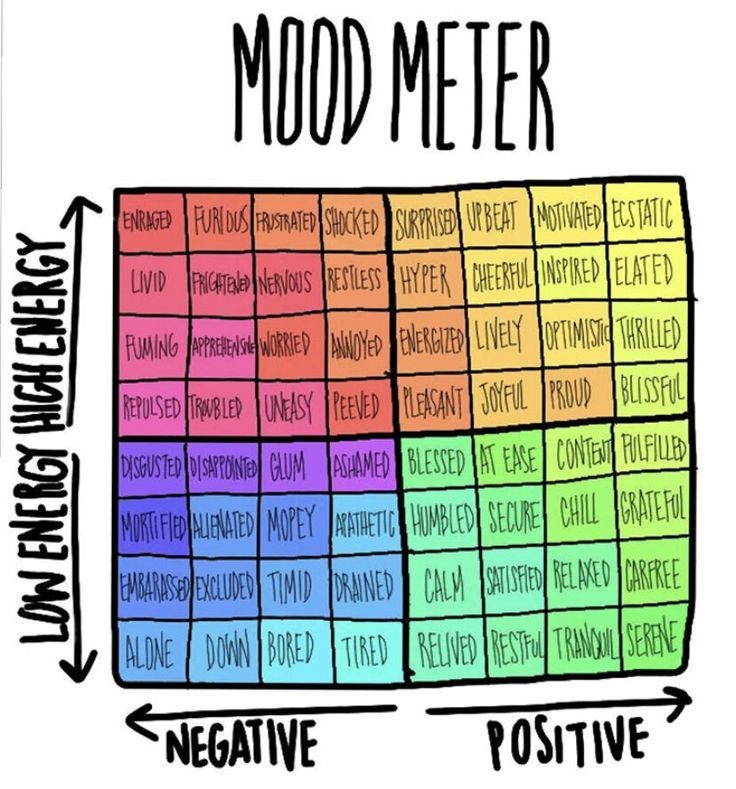 MOOD METER
HIGH ENERGY
LOW ENERGY
ENRAGED FURIOUS FRUSTRATED SHOCKED SURPRISED UPBEAT MOTIVATED ECSTATIC
LIVID FRIGHTENED NERVOUS RESTLESS HYPER CHEERFUL INSPIRED ELATED
FUMING APPREHENSIVE WORRIED ANNOYED ENERGIZED LIVELY OPTIMISTIC THRILLED
REPULSED TROUBLED UNEASY PEEVED PLEASANT JOYFUL PROUD BLISSFUL
DISGUSTED DISAPPOINTED GLUM ASHAMED BLESSED AT EASE CONTENT FULFILLED
MORTIFIED ALIENATED MOPEY APATHETIC HUMBLED SECURE CHILL GRATEFUL
EMBARASSED EXCLUDED TIMID DRAINED CALM SATISFIED RELAXED CARFREE
ALONE DOWN BORED TIRED RELIVED RESTFUL TRANQUIL SERENE
NEGATIVE POSITIVE